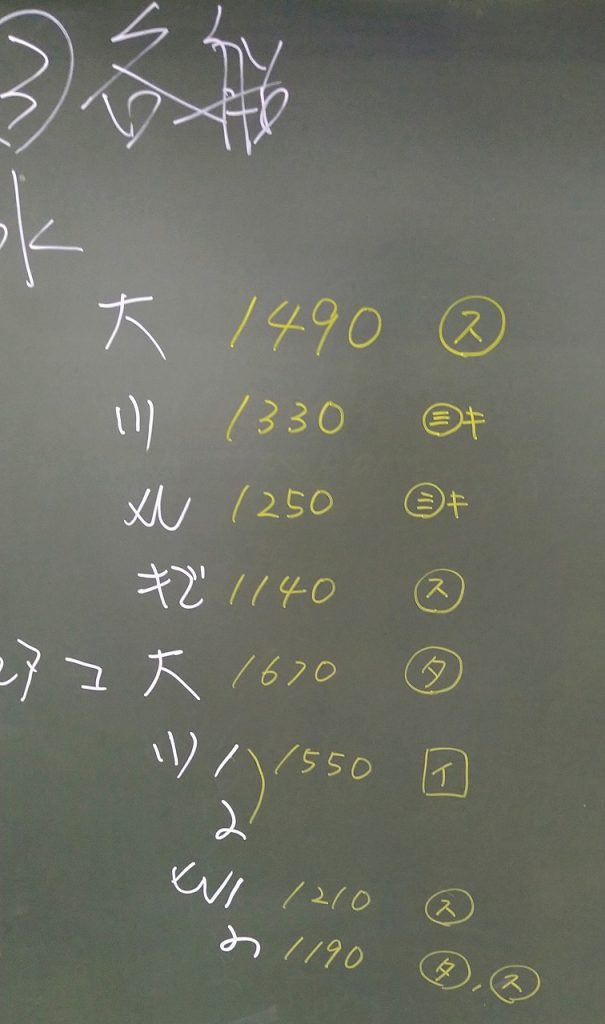 ③各船
水
大 1490 ㋜
小 1330 ㋯キ
1250 ㋯キ
キズ 1140 ㋜
コ 大 1670 ㋟
小 1 1550 イ
2
1210 ㋜
1190 ㋟, ㋜